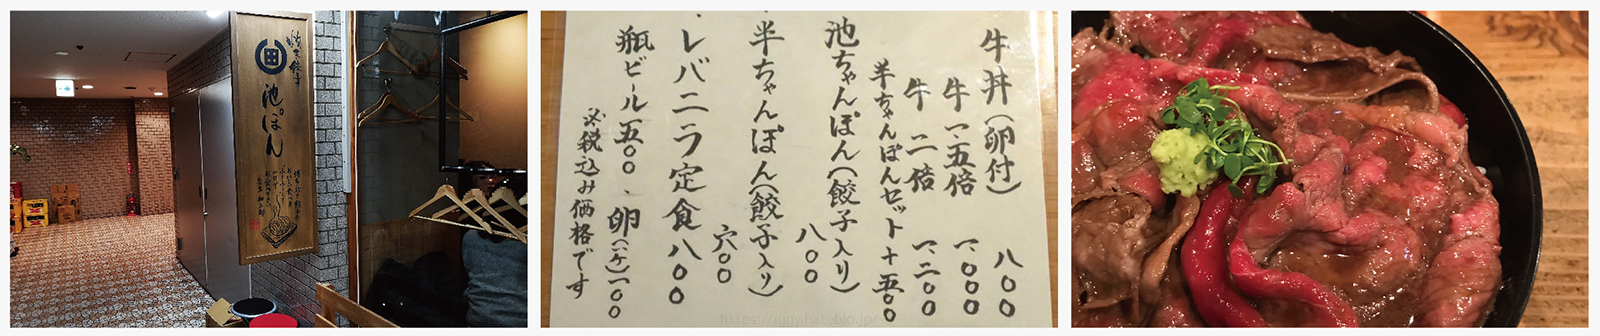 焼き餃子
田
池ぽん
牛丼(卵付) 八〇〇
牛 一、五倍 一、〇〇〇
牛 二倍 一、二〇〇
半ちゃんぽんセット+五〇〇
池ちゃんぽん(餃子入り) 八〇〇
半ちゃんぽん(餃子入り) 六〇〇
レバニラ定食 八〇〇
瓶ビール 五〇〇、卵(一ヶ)一〇〇
※税込み価格です
https://iggy.hateblo.jp/